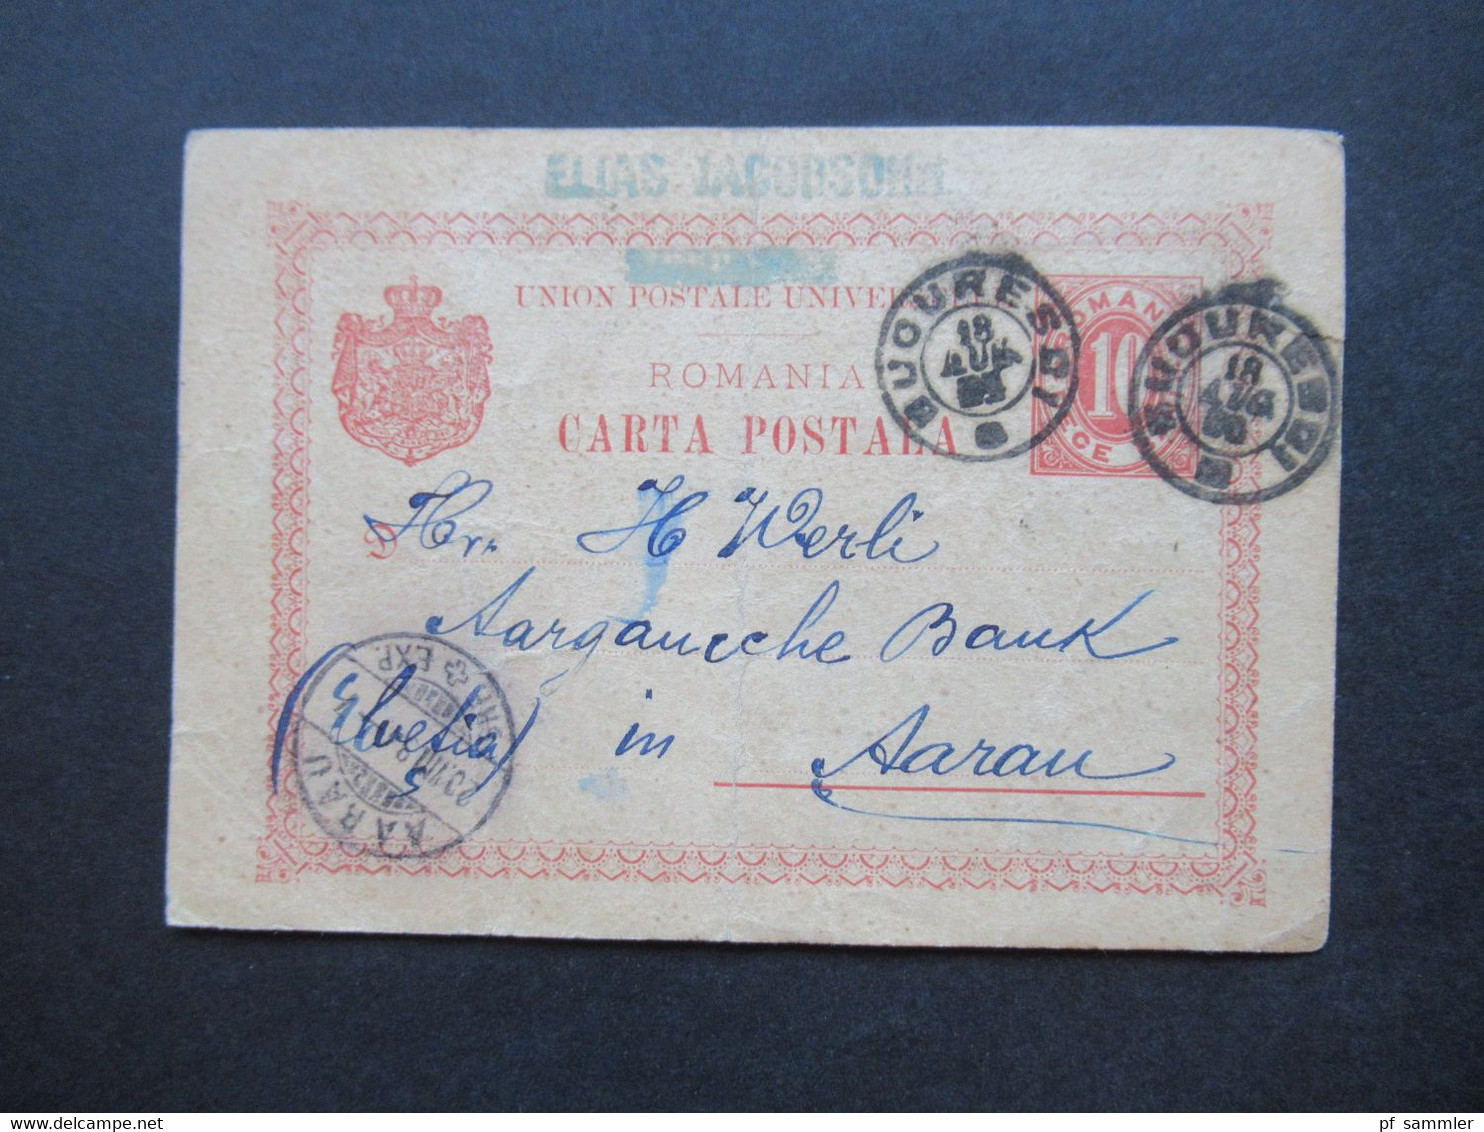 ELIAS JACOBSOHN
UNION POSTALE UNIVER
ROMANIA
CARTA POSTALA
ROMAN
10
ZECE
BUCURESCI
18
AUG
BUCURESCI
18
AUG
D
Hrr. H Werli
Aargauische Bank
(Elvetia) in Aarau
AARAU
20.VIII
EXP.
www.delcampe.net
pf sammler